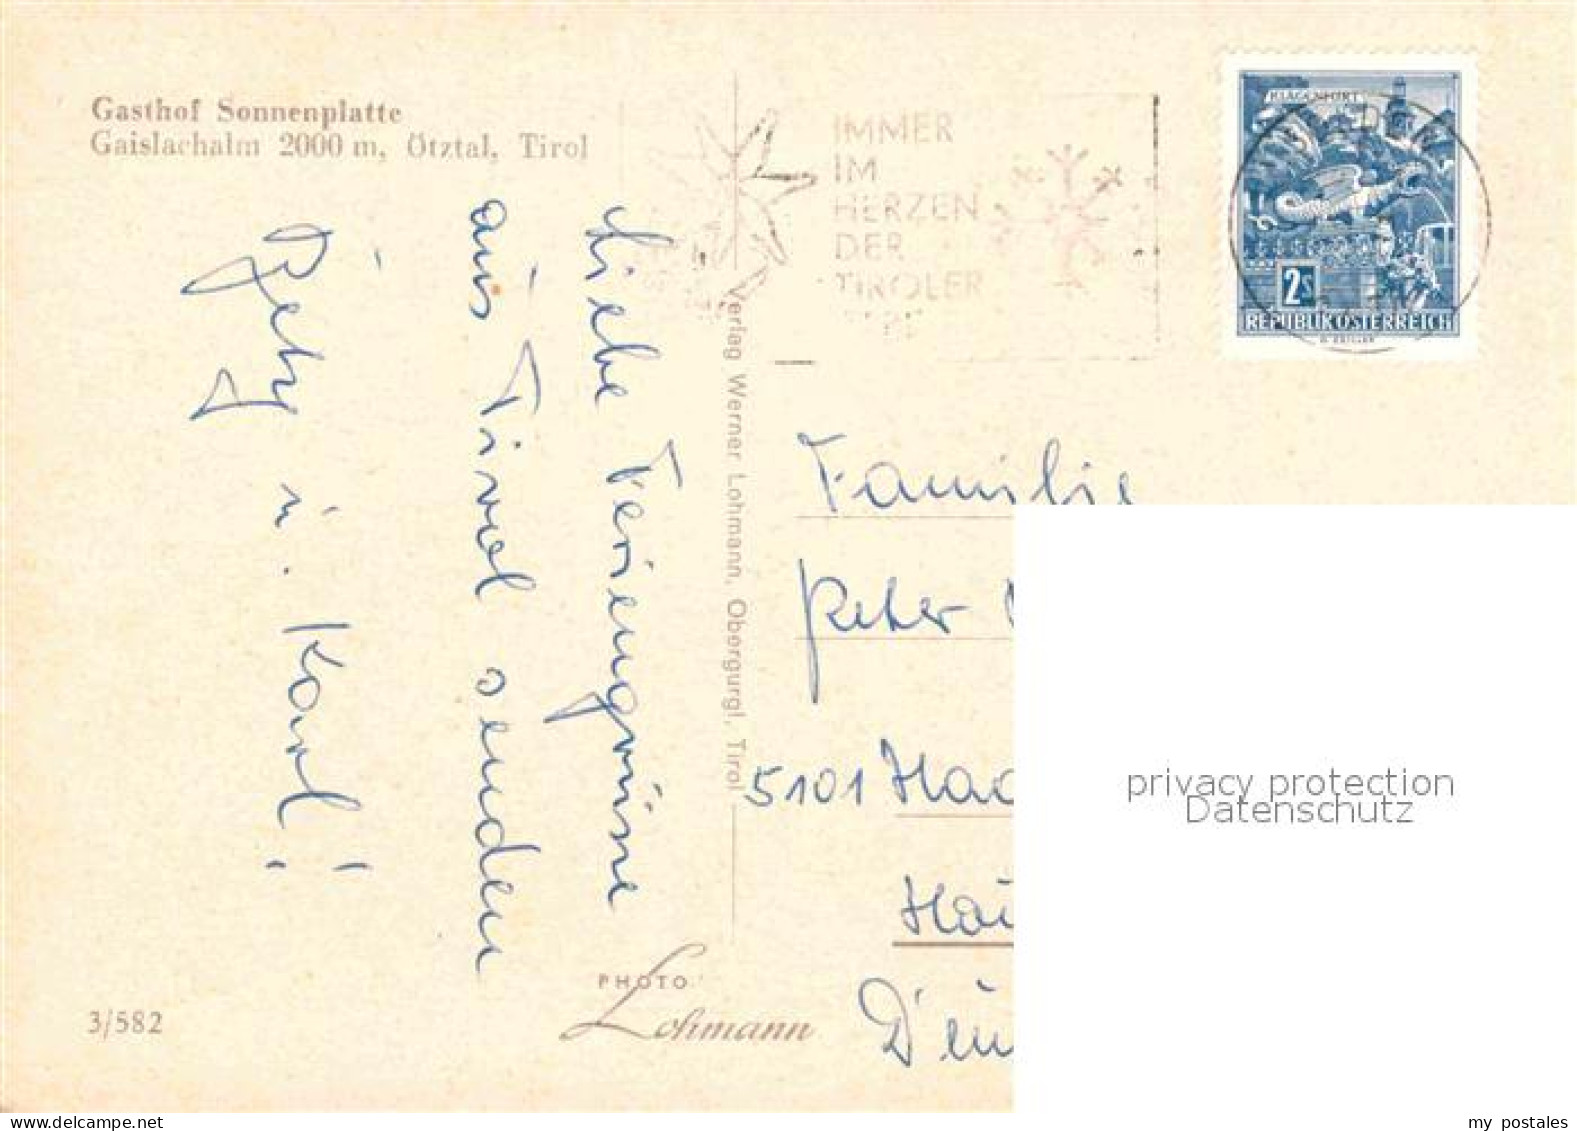 Gasthof Sonnenplatte
Gaislachalm 2000 m, Ötztal, Tirol
Liebe Feriengrüße
aus Tirol senden
u. Karl!
Verlag Werner Lohmann, Obergurgl, Tirol
IMMER
IM
HERZEN
DER
TIROLER
KLAGENFURT
2s
REPUBLIK ÖSTERREICH
Familie
Peter
5101 Haa
Hau
Deu
privacy protection
Datenschutz
PHOTO
Lohmann
3/582
www.delcampe.net
my postales